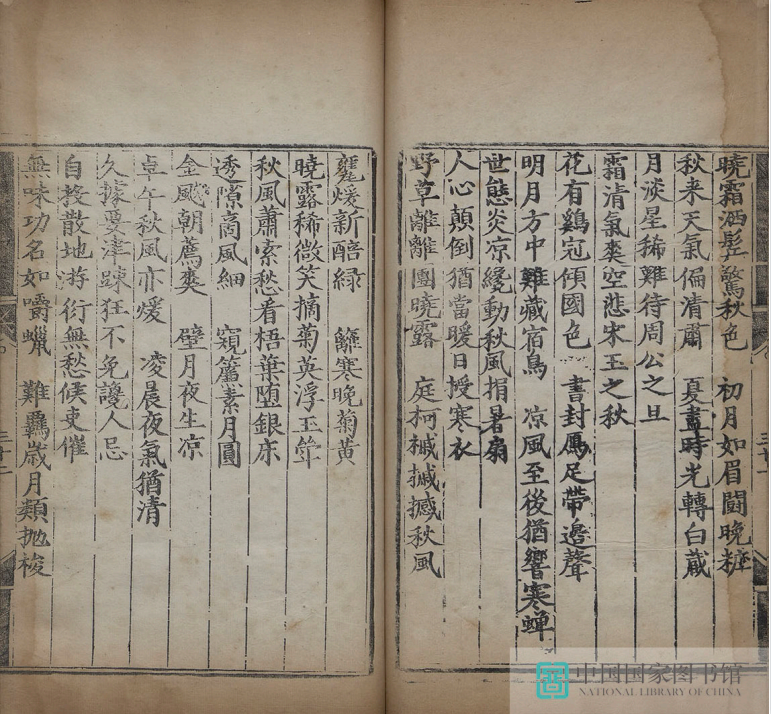 曉霜洒髩驚秋色 初月如眉鬪晚粧
秋来天氣偏清肅 夏盡時光轉白蔵
月淡星稀難待周公之旦
霜清氣爽空悲宋玉之秋
花有鷄冠傾國色 書封鴈足帶邊聲
明月方中難藏宿鳥 凉風至後猶響寒蟬
世態炎凉纔動秋風捐暑扇
人心顛倒猶當暖日授寒衣
野草離離團曉露 庭柯槭槭撼秋風
三十一
甕煖新醅緑 籬寒晚菊黄
曉露稀微笑摘菊英浮玉斝
秋風蕭索愁看梧葉堕銀床
透隙高風細 窺簷素月圓
金颷朝薦爽 璧月夜生凉
卓午秋風亦煖 凌晨夜氣猶清
久據要津踈狂不免讒人忌
自投散地游衍無愁候吏催
無味功名如嚼蠟 難羈歲月類抛梭
三十二
中国国家图书馆
NATIONAL LIBRARY OF CHINA